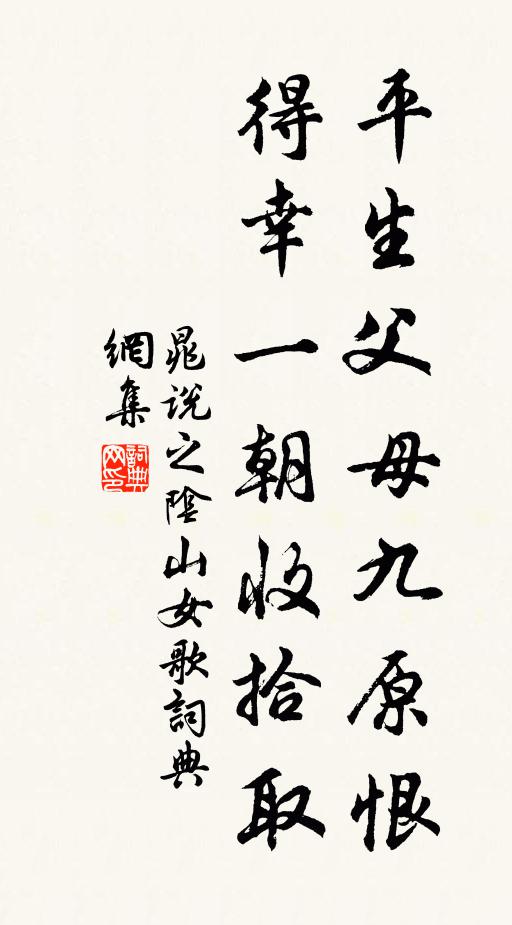 平生父母九原恨
得幸一朝收拾取
晁說之陰山女歌詞典
網集
詞典
网印